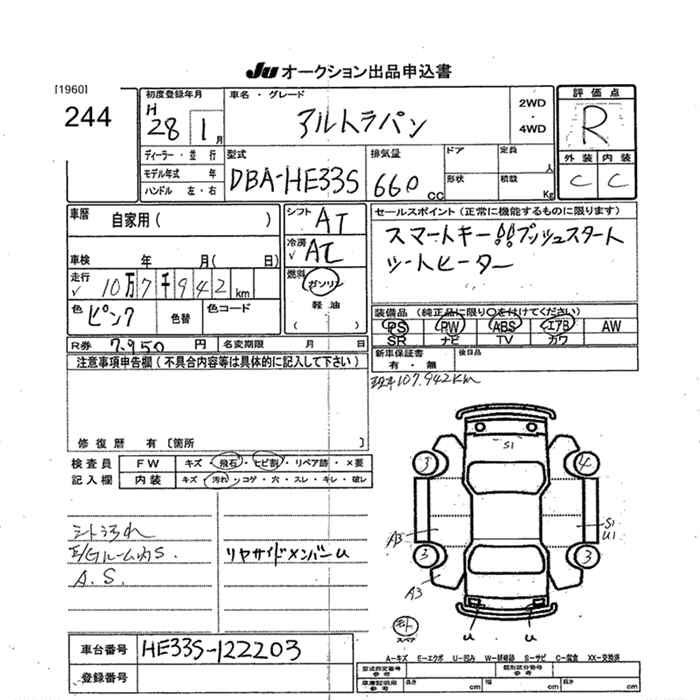 JU オークション出品申込書
[1960]
244
初度登録年月
H
28 1月
車名・グレード
アルトラパン
2WD
・
4WD
評価点
R
外装 内装
C C
ディーラー・並行
モデル年式 年
ハンドル 左・右
型式
DBA-HE33S
排気量
660 CC
ドア
形状
定員 人
積数 Kg
車暦
自家用( )
シフト
AT
セールスポイント(正常に機能するものに限ります)
スマートキー!!プッシュスタート
シートヒーター
車検 年 月( 日)
冷房
AC
走行
10万7千942 km
燃料
ガソリン
軽油
( )
色
ピンク
色替
色コード
装備品(純正品に限り○を付けてください)
PS PW ABS エアB AW
SR ナビ TV カワ
R券 7,950 円
名変期限 月 日
新車保証書
有・無
後日品
注意事項申告欄(不具合内容等は具体的に記入して下さい)
現車107,942km
修復暦 有〔箇所 〕
検査員
記入欄
FW キズ・飛石・ヒビ割・リペア跡・×要
内装 キズ・汚れ・コゲ・穴・スレ・キレ・破レ
シート汚れ
E/Gルーム内S.
A.S.
リヤサイドメンバーU
S1
3 4
A3
S1
U1
3 3
A3
U U
スペア
A-キズ E-エクボ U-凹み W-補修跡 S-サビ C-腐食 XX-交換済
車台番号 HE33S-122203
登録番号
型式指定番号
参考
類別区分番号
参考
車庫証明用
参考
長さ cm 幅 cm 高さ cm